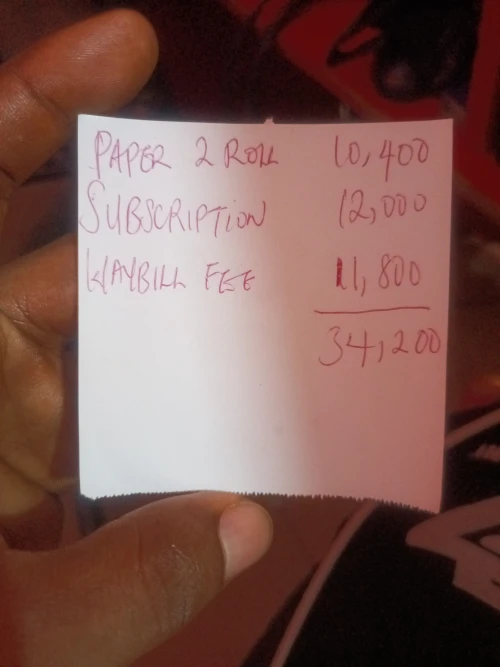 PAPER 2 ROLL 10,400
SUBSCRIPTION 12,000
WAYBILL FEE 11,800
34,200